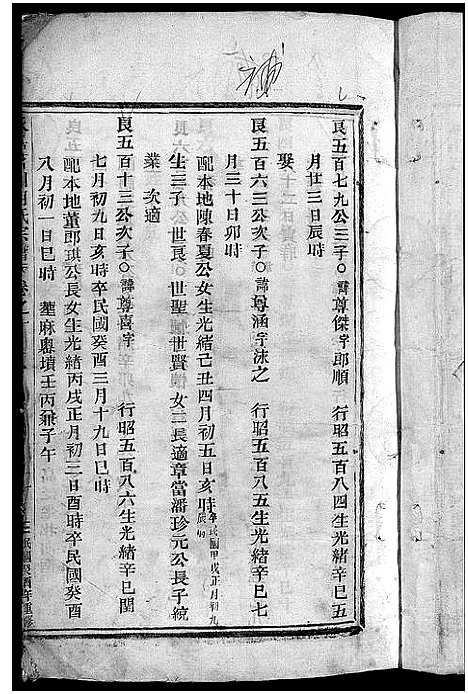 補
良五百七九公三子○諱尊傑字郎順 行昭五百八四生光緒辛巳五
月廿三日辰時
娶
良五百六三公次子○諱尊涵字沫之 行昭五百八五生光緒辛巳七
月三十日卯時
配本地陳春夏公女生光緒己丑四月初五日亥時卒民國甲戌正月初九
生三子 世良○世聖 世賢 女二長適章當潘珍元公長子統
業 次適
良五百十三公次子○諱尊喜字 行昭五百八六生光緒辛巳閏
七月初九日亥時卒民國癸酉三月十九日巳時
配本地董郎琪公長女生光緒丙戌正月初三日酉時卒民國癸酉
八月初一日巳時 墓麻塢墳壬丙兼子午